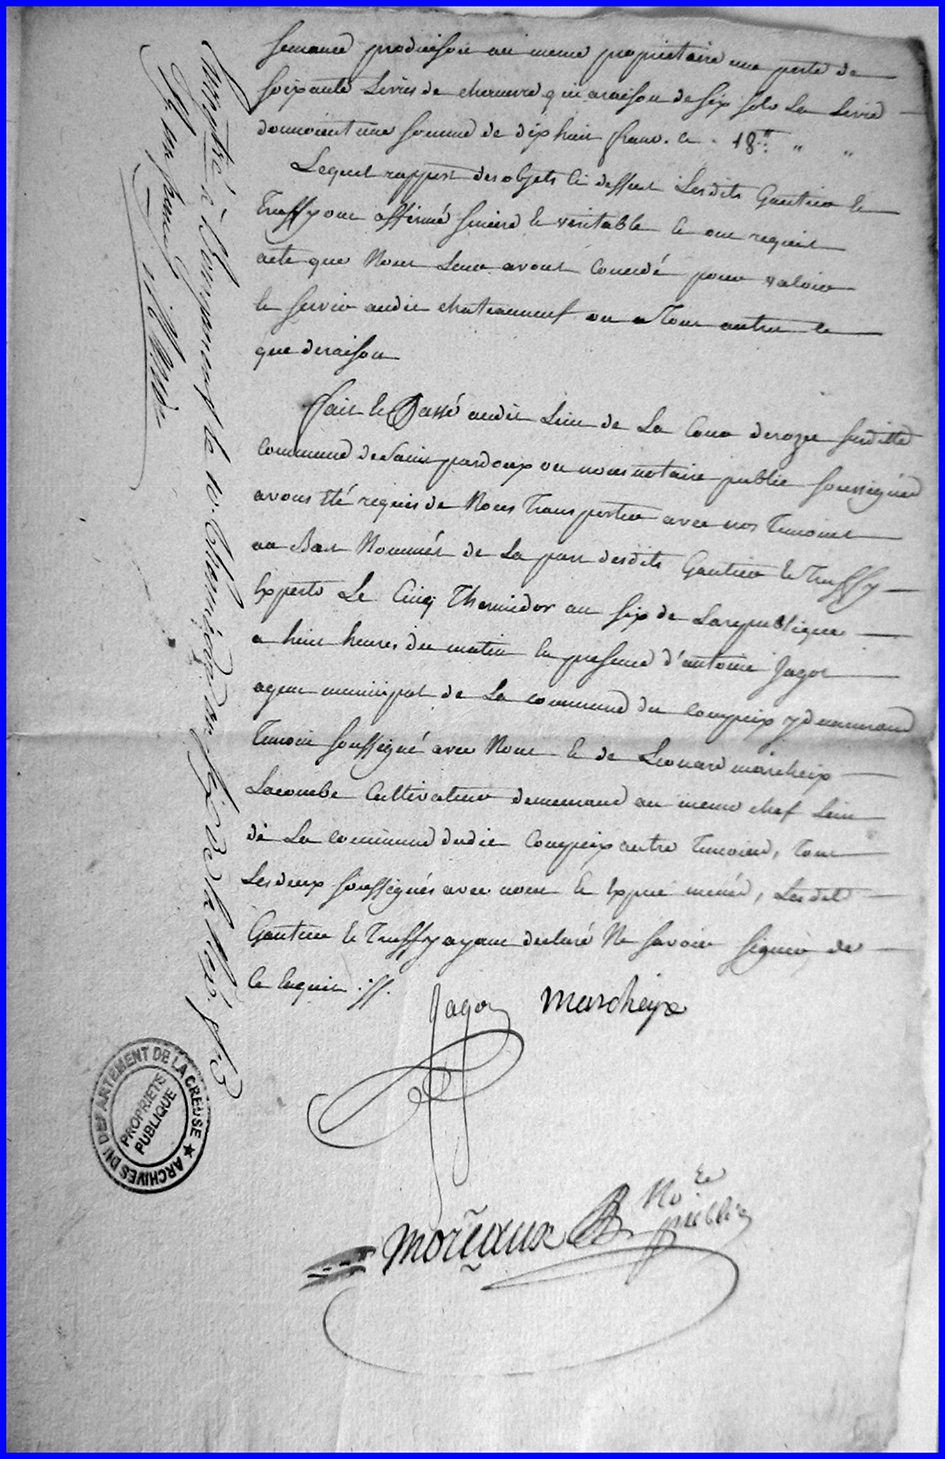 semance produisoit au meme propriétaire une perte de
soixante Livres de chenevre qui araison de six sols La Livre
donnoient une somme de dix huit franc. cy . 18.tt " "
Lequel rapport des objets ci dessus Lesdits Gautier et
Truffy ont affirmé sincere et veritable et ont requis
acte que Nous Leur avons concedé pour valoir
et servir audit chateauneuf ou a Tour autre ce
que deraison
fait et Passé audit Lieu de La Coux derozer susditte
commune de Saint pardoux ou nous notaire public soussigné
avons été requis de Nous Transporter avec nos Temoins
au Bas Nommés de La part desdits Gautier et Truffy
Experts Le Cinq Thermidor an six de Larepublique
a huit heures du matin En presence d'antoine Jagot
agent municipal de La commune du compeix y demeurant
Temoin soussigné avec Nous et de Leonard marcheix
Lacombe Cultivateur demeurant au meme chef Lieu
de La commune dudit Compeix autre Temoin, tous
Lesdeux soussignés avec nous et Lesdits
Gautier et Truffy ayant declaré Ne savoir signer de
ce Enquis .//.
Jagot marcheix
moreaux No re
public
Enregistré à Bourganeuf le thermidor an six de la Rep.
Reçu un franc
ARCHIVES DU DEPARTEMENT DE LA CREUSE ★
PROPRIETE
PUBLIQUE